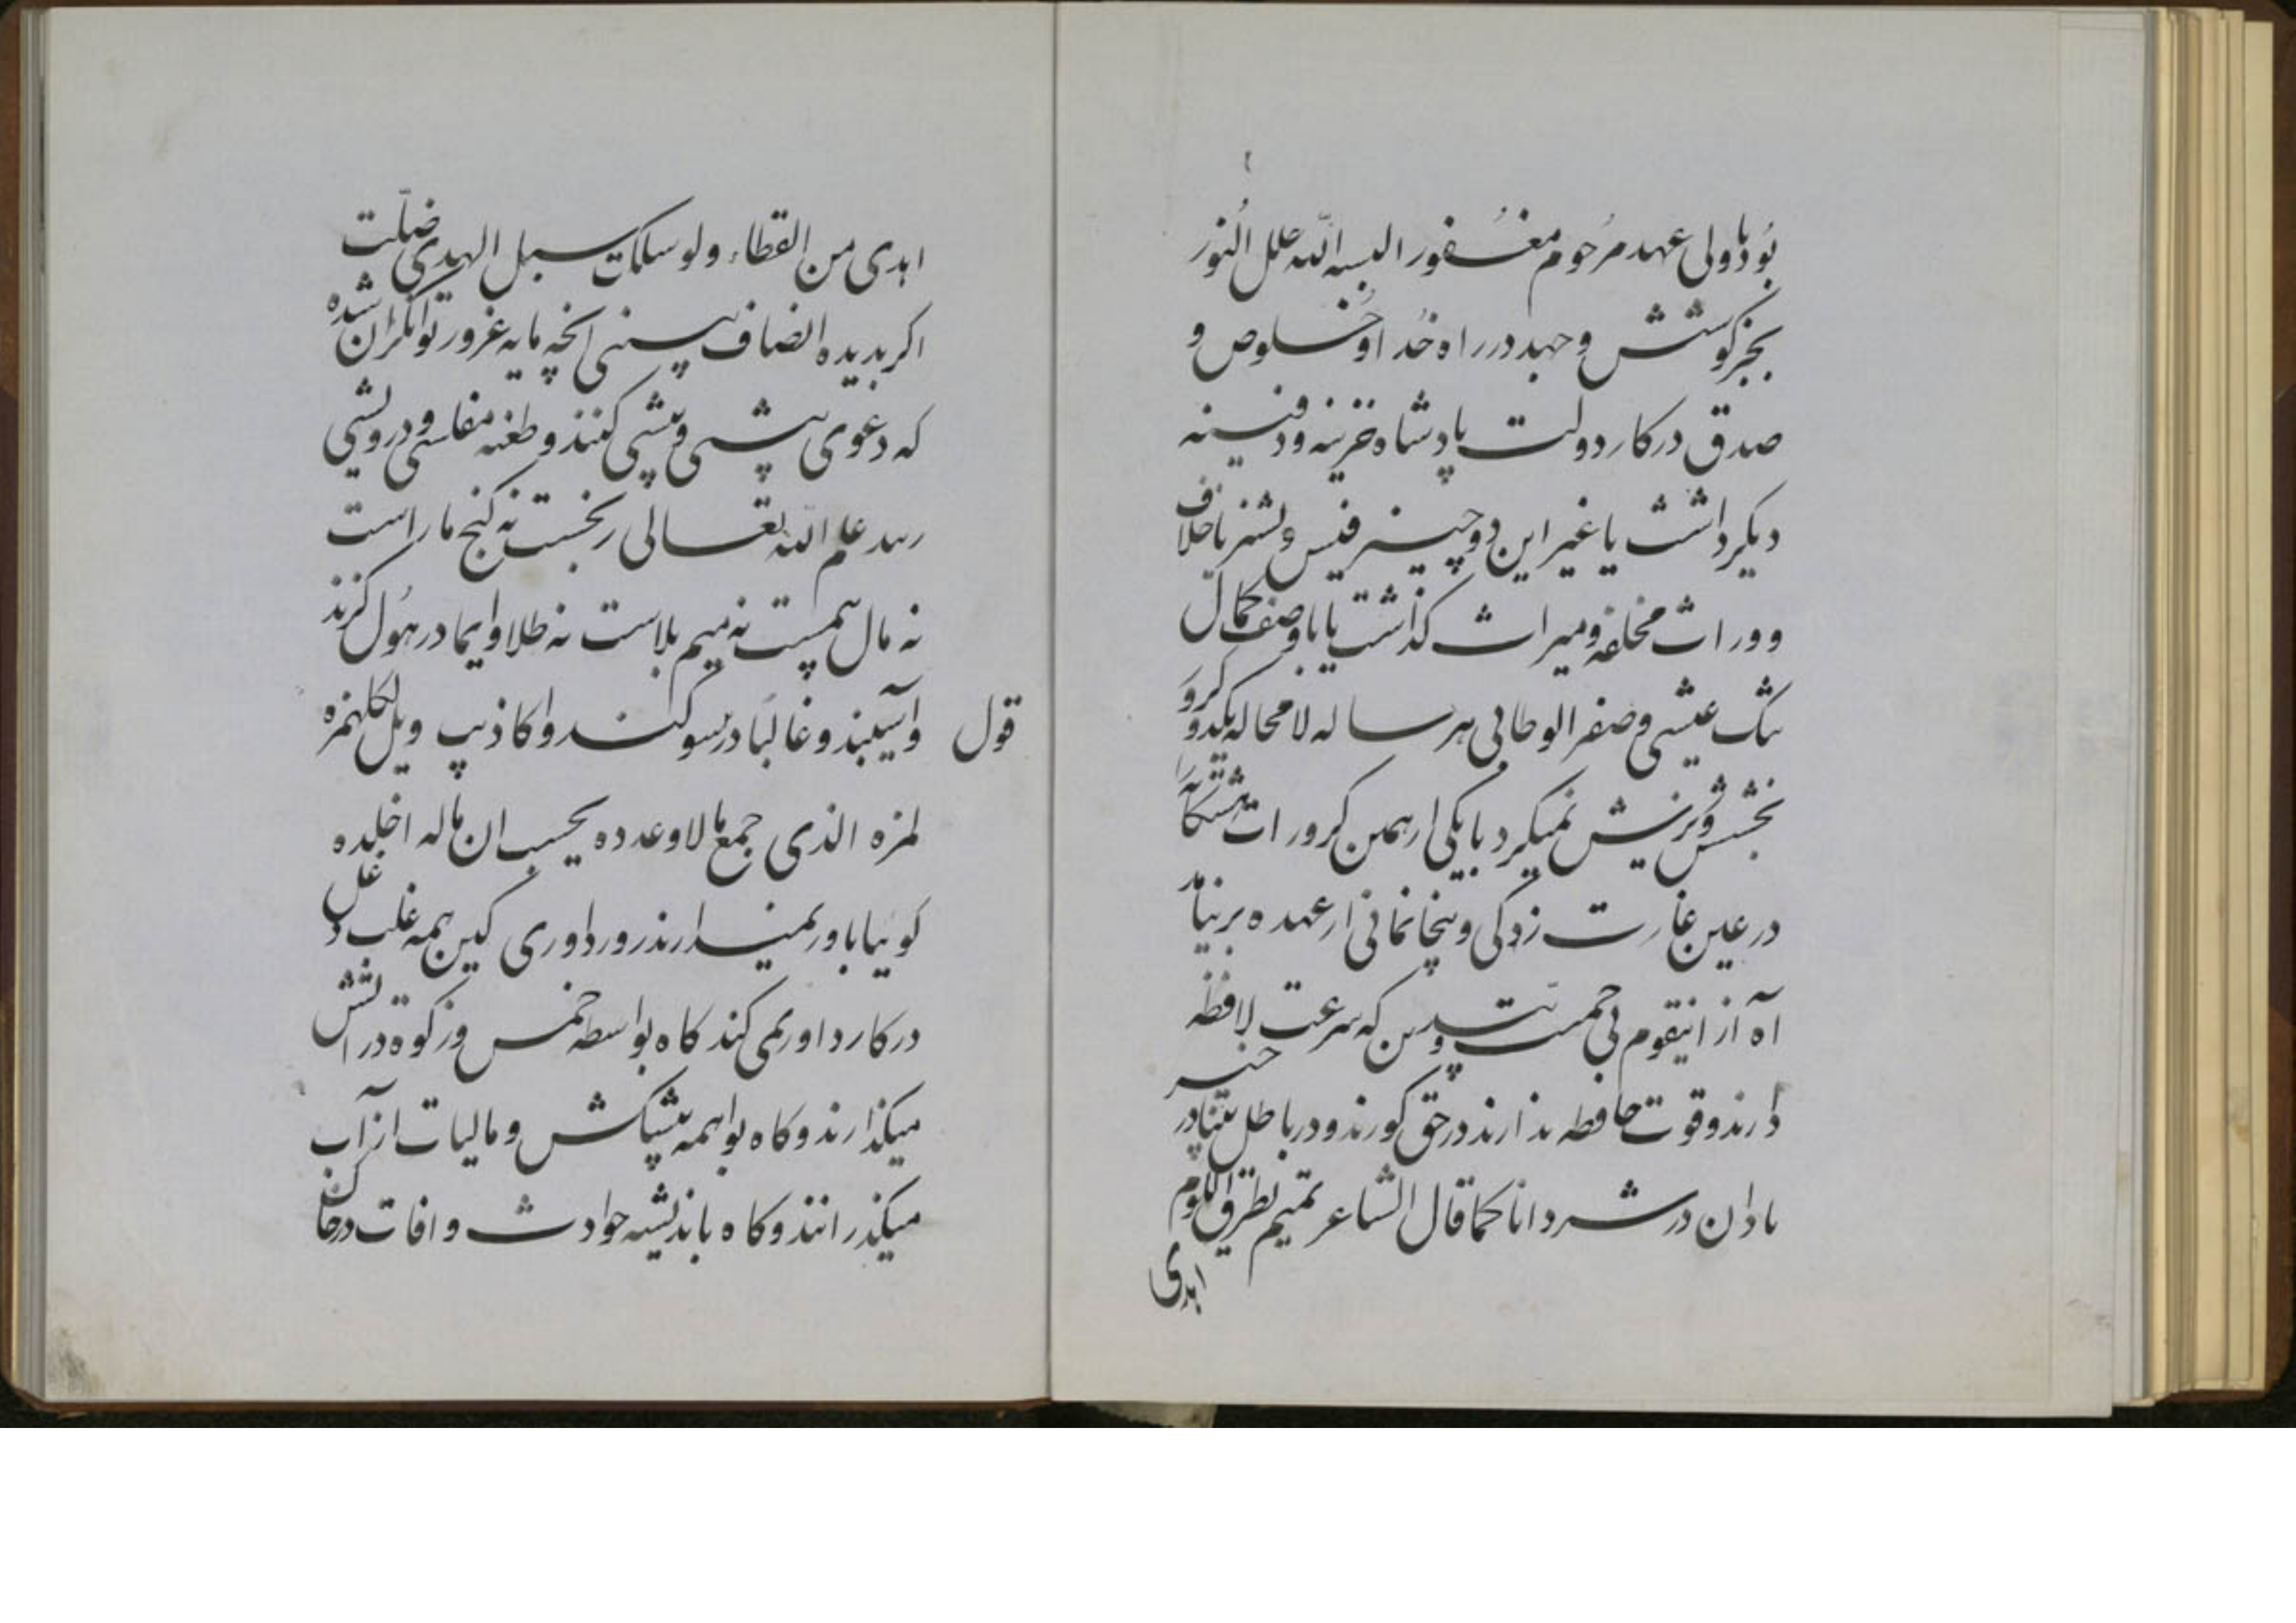 بود با ولی عهد مرحوم مغفور البسه الله حلل النور
بجز کوشش و جهد در راه خدا و خلوص و
صدق در کار دولت پادشاه خزینه و دفینه
دیگر داشت یا غیر این دو چیز نفیس و بشنر باخلاف
و وراث مخلفه و میراث گذاشت یا با وصف کمال
تنگ عیشی و صفر الوطابی هر ساله لا محاله یکدو کرور
بخشش و ریزش نمیکرد یا یکی از همین کرورات ششگانه را
در عین غارت زدگی و بیخانمانی از عهده برنیامد
آه از اینقوم بی حمیت و بیدین که سرعت لافظه
دارند و قوت حافظه ندارند در حق کورند و در باطل بینا در خیر
نادان در شر دانا کما قال الشاعر تمیم بطرق اللوم
اهدی
اهدی من القطاء ولو سلکت سبل الهدی ضلت
اگر بدیده انصاف ببینی آنچه مایه غرور توانگران شده
که دعوی پیشی و بیشی کنند و طعنه مفلسی و درویشی
زنند علم الله تعالی رنجست نه گنج مار است
نه مال پست نه میم بلاست نه طلا و ایما در هول گزند
و آسیبند و غالبا در سوگند و اکاذیب ویل لکل همزه
قول
لمزه الذی جمع مالا و عدده یحسب ان ماله اخلده
گوئیا باور نمیدارند روز داوری کین همه قلب و دغل
در کار داور می کنند گاه بواسطه خمس و زکوة در آتش
میگذارند و گاه بواهمه پیشکش و مالیات از آب
میگذرانند و گاه باندیشه حوادث و افات در خاک